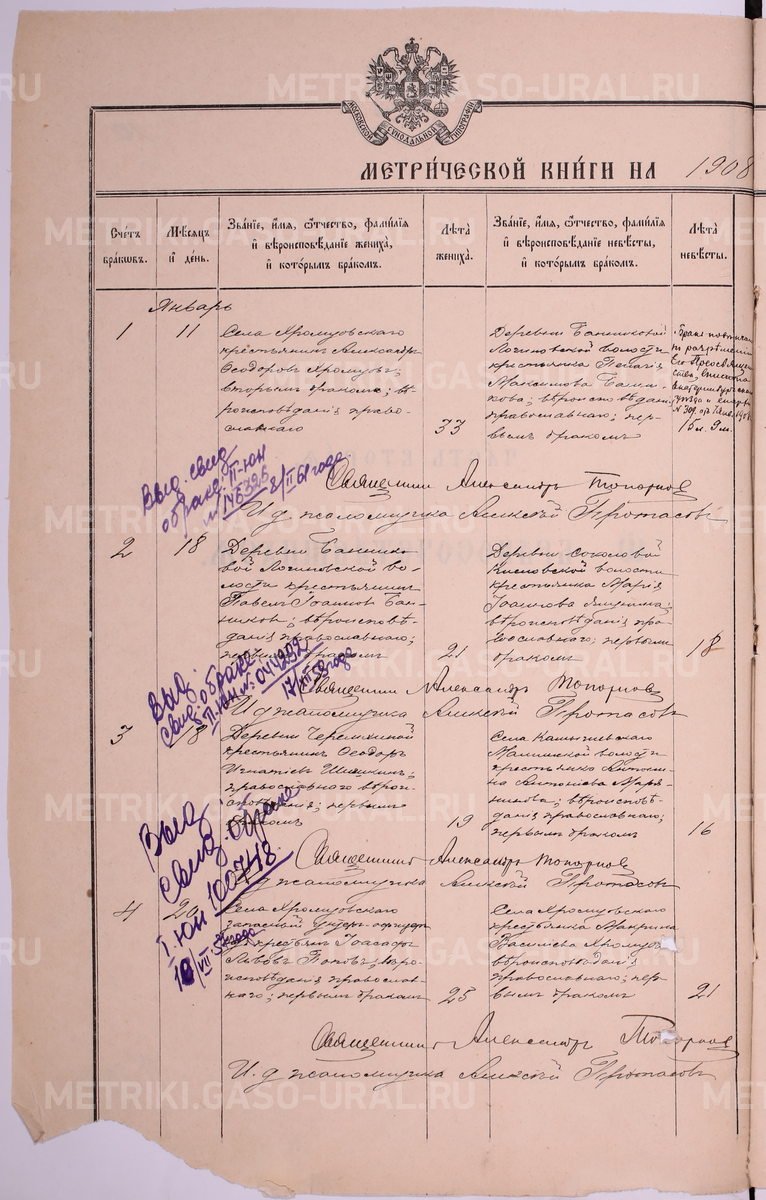 МОСКОВСКОЙ СѴНОДАЛЬНОЙ ТИПОГРАФІИ
МЕТРИ́ЧЕСКОЙ КНИ́ГИ НА 1908
Сче́тъ бра́кѡвъ.
Мѣ́сяцъ и҆ де́нь.
Зва́ніе, и҆́мя, ѻ҆́тчество, фами́лія
и҆ вѣроисповѣ́даніе жениха̀,
и҆ кото́рымъ бра́комъ.
Лѣ́та жениха̀.
Зва́ніе, и҆́мя, ѻ҆́тчество, фами́лія
и҆ вѣроисповѣ́даніе невѣ́сты,
и҆ кото́рымъ бра́комъ.
Лѣ́та невѣ́сты.
Январь
1
11
Села Хромцовскаго
крестьянинъ Александръ
Ѳеодоровъ Хромцовъ;
вторымъ бракомъ; вѣ-
роисповѣданія право-
славнаго
33
Деревни Банниковой
Логиновской волости
крестьянка Пелагія
Максимова Банни-
кова; вѣроисповѣданія
православнаго; пер-
вымъ бракомъ
Бракъ повѣнчанъ
по разрѣшенію
Его Преосвящен
ства, Епископа
Екатеринбургскаго
15 л. 9 м.
Священникъ Александръ Топорковъ
И. д. псаломщика Алексѣй Протасовъ
Выд. свид.
о браке II-юн
8/II 61 года
2
18
Деревни Баннико-
вой Логиновской во-
лости крестьянинъ
Павелъ Іоанновъ Бан-
никовъ; вѣроисповѣ-
данія православнаго;
первымъ бракомъ
21
Деревни Соколовой
Кисловской волости
крестьянка Марія
Іоаннова Ячменева;
вѣроисповѣданія пра-
вославнаго; первымъ
бракомъ
18
Священникъ Александръ Топорковъ
И. д. псаломщика Алексѣй Протасовъ
Выд.
свид. о браке
II-юн № 044202
17/XII 58 года
3
18
Деревни Черемхиной
крестьянинъ Ѳеодоръ
Игнатіевъ Шишкинъ;
православнаго вѣрои-
сповѣданія; первымъ
бракомъ
19
Села Камышевскаго
Маминской волости
крестьянка Антони-
на Антоніева
вѣроисповѣ-
данія православнаго;
первымъ бракомъ
16
Священникъ Александръ Топорковъ
И. д. псаломщика Алексѣй Протасовъ
Выд.
свид. о браке
I-юн 1007418.
4
20
Села Хромцовскаго
запасный унтеръ-офицеръ
изъ крестьянъ Іоасафъ
Львовъ Поповъ; вѣро-
исповѣданія православ-
наго; первымъ бракомъ
25
Села Хромцовскаго
крестьянка Макрина
Василіева Хромцова
вѣроисповѣданія
православнаго; пер-
вымъ бракомъ
21
Священникъ Александръ Топорковъ
И. д. псаломщика Алексѣй Протасовъ
METRIKI.GASO-URAL.RU